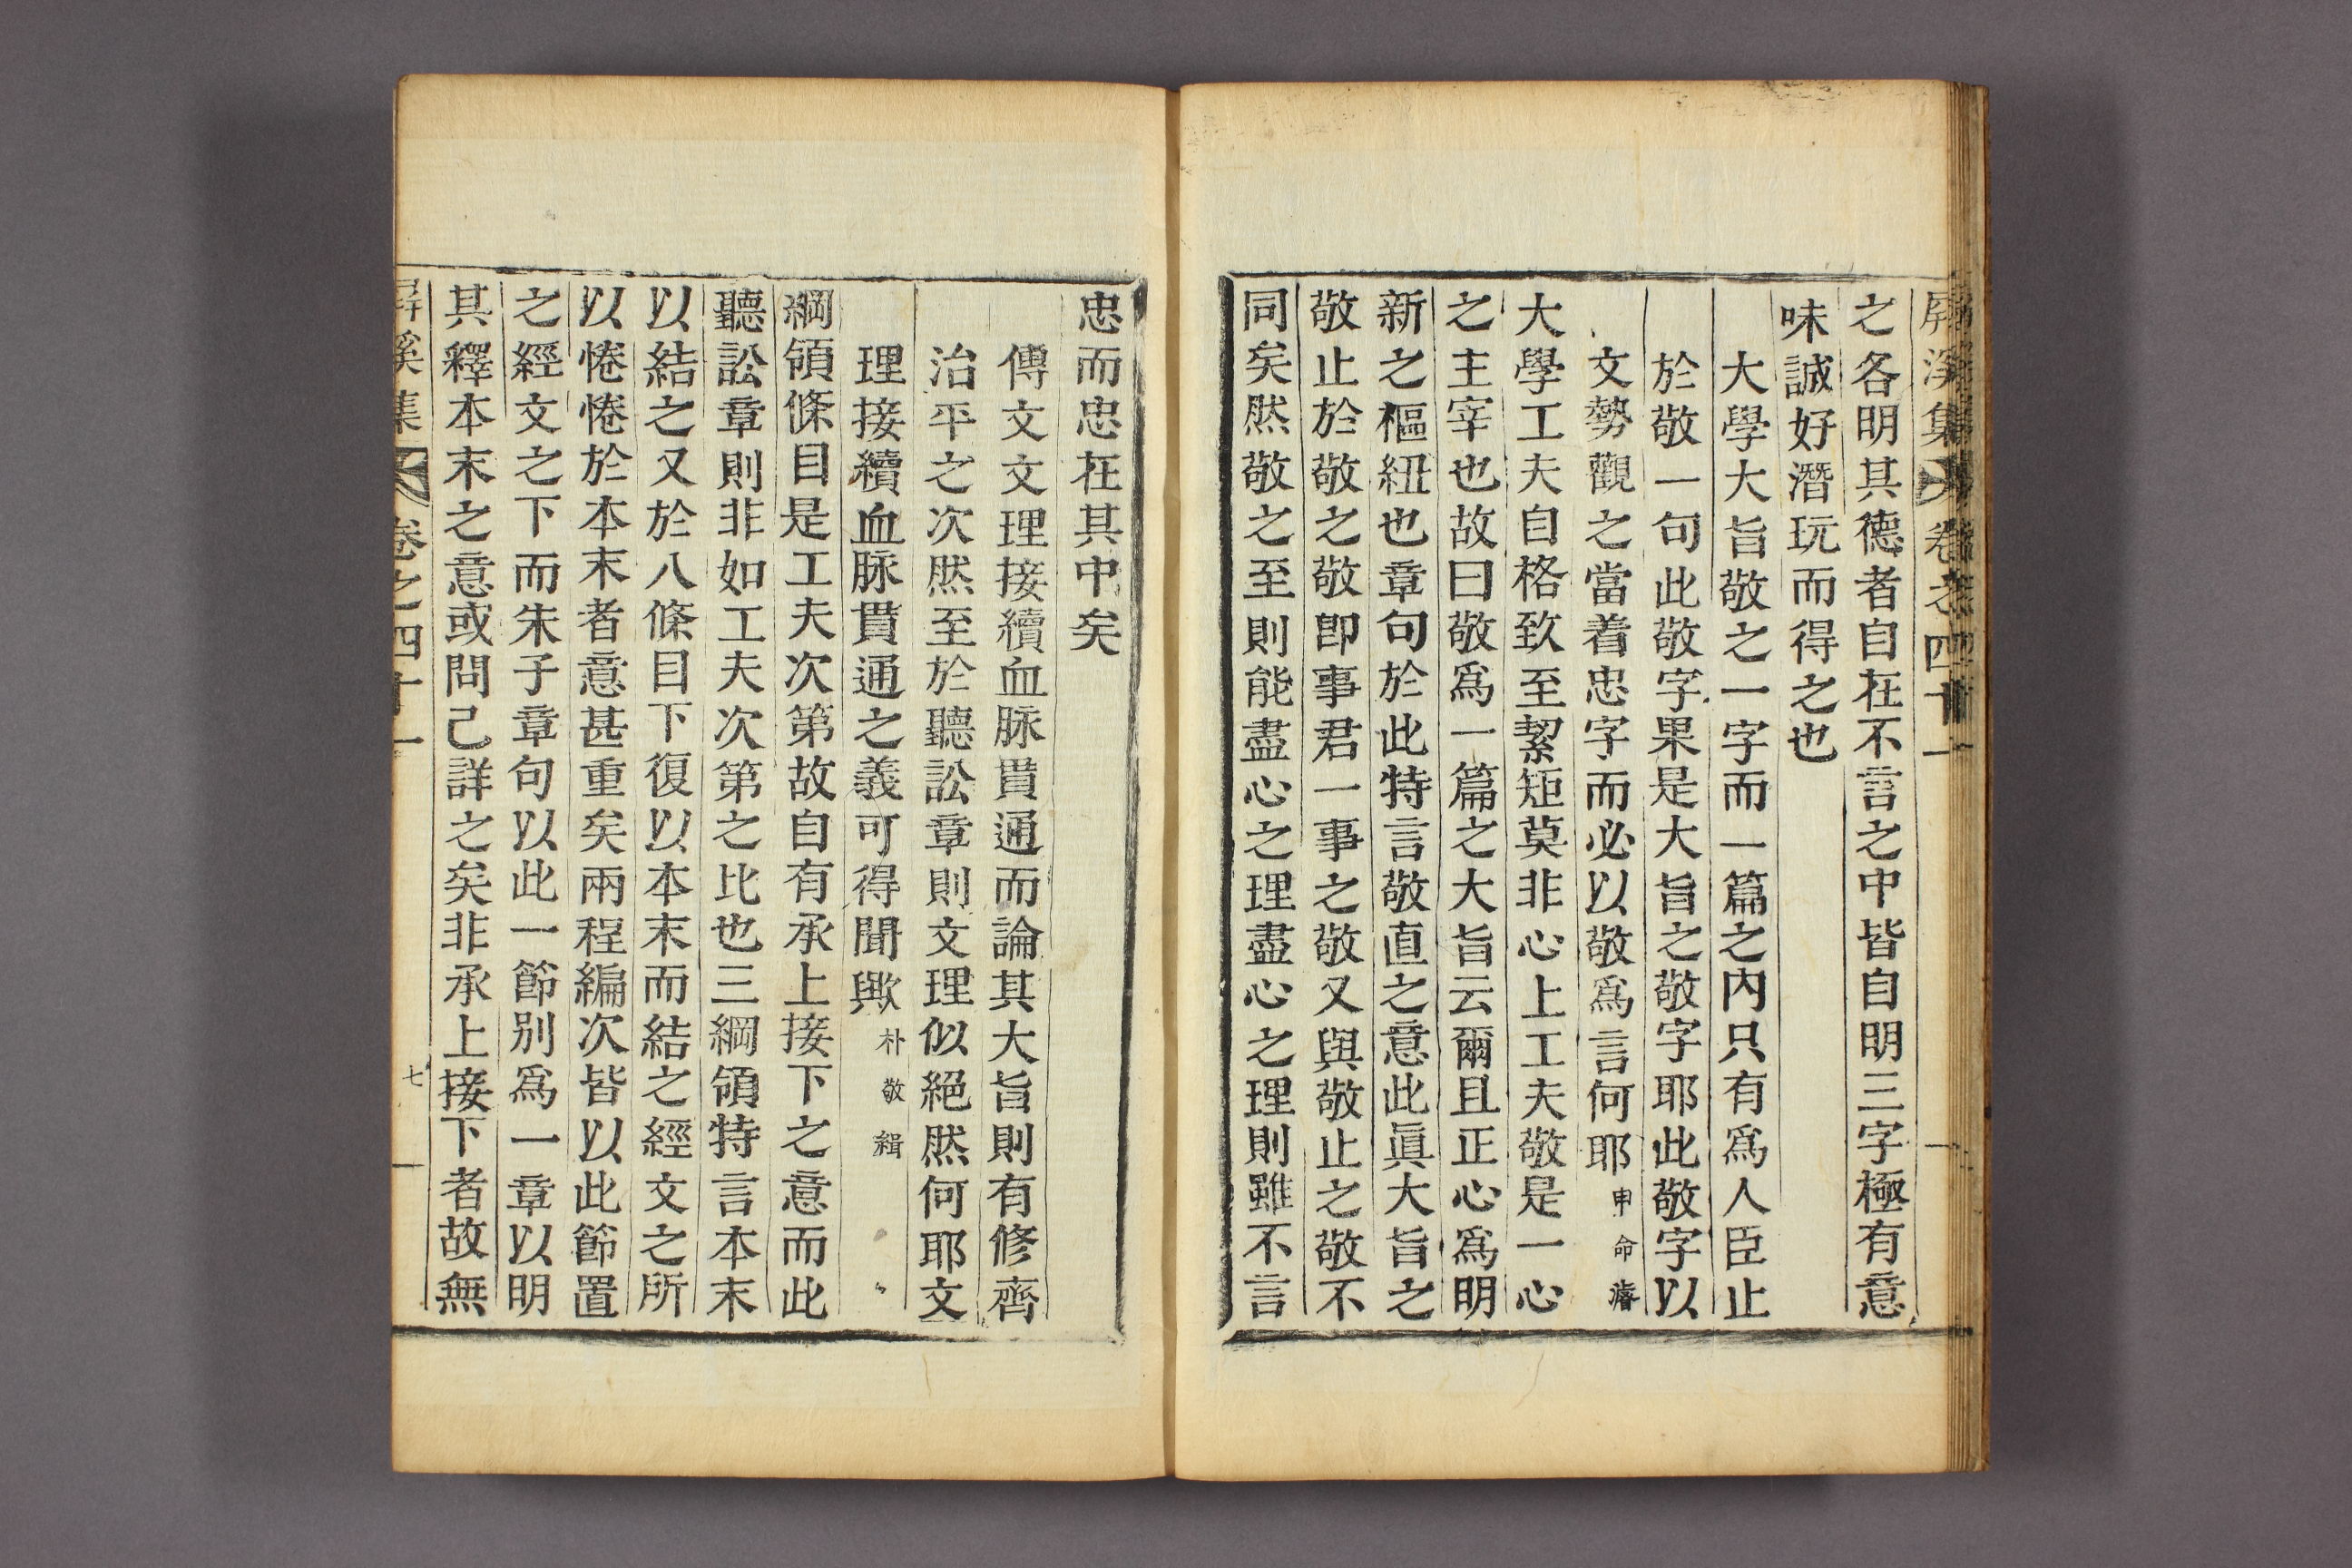 屛溪集 卷之四十一
之各明其德者自在不言之中皆自明三字極有意
味誠好潛玩而得之也
大學大旨敬之一字而一篇之內只有爲人臣止
於敬一句此敬字果是大旨之敬字耶此敬字以
文勢觀之當着忠字而必以敬爲言何耶申命濬
大學工夫自格致至絜矩莫非心上工夫敬是一心
之主宰也故曰敬爲一篇之大旨云爾且正心爲明
新之樞紐也章句於此特言敬直之意此眞大旨之
敬止於敬敬之敬卽事君一事之敬又與敬止之敬不
同矣然敬之至則能盡心之理盡心之理則雖不言
忠而忠在其中矣
傳文文理接續血脉貫通而論其大旨則有修齊
治平之次然至於聽訟章則文理似絕然何耶文
理接續血脉貫通之義可得聞歟朴敬緝
綱領條目是工夫次第故自有承上接下之意而此
聽訟章則非如工夫次第之比也三綱領特言本末
以結之又於八條目下復以本末而結之經文之所
以惓惓於本末者意甚重矣兩程編次皆以此節置
之經文之下而朱子章句以此一節別爲一章以明
其釋本末之意或問已詳之矣非承上接下者故無
屛溪集 卷之四十一 七